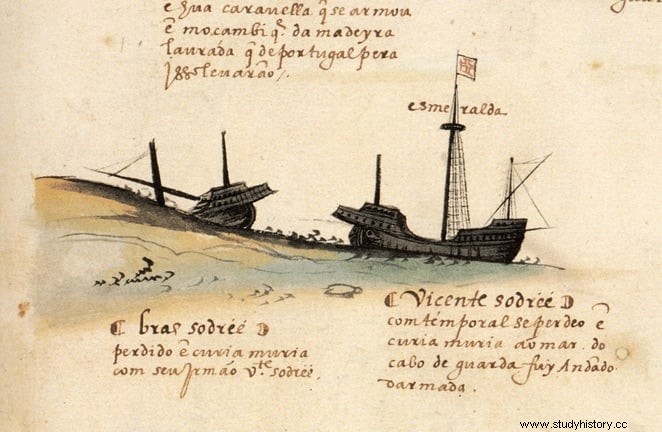 e hua caravella q̃ se armou
ẽ moçambiq̃. da madeyra
laurada q̃ de portugal pera
jsso levarão.
esmeralda
bras sodréé
perdido ẽ curia muria
com seu Jrmão v.te sodréé.
Vicente sodréé
com témporal se perdeo ẽ
curia muria ao mar. do
cabo de guarda fuy Andãdo
darmada.
www.studyhistory.cc